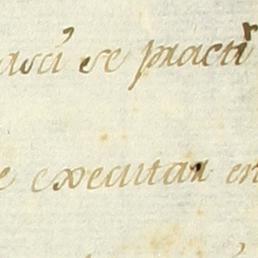 asci se practi
e executan en